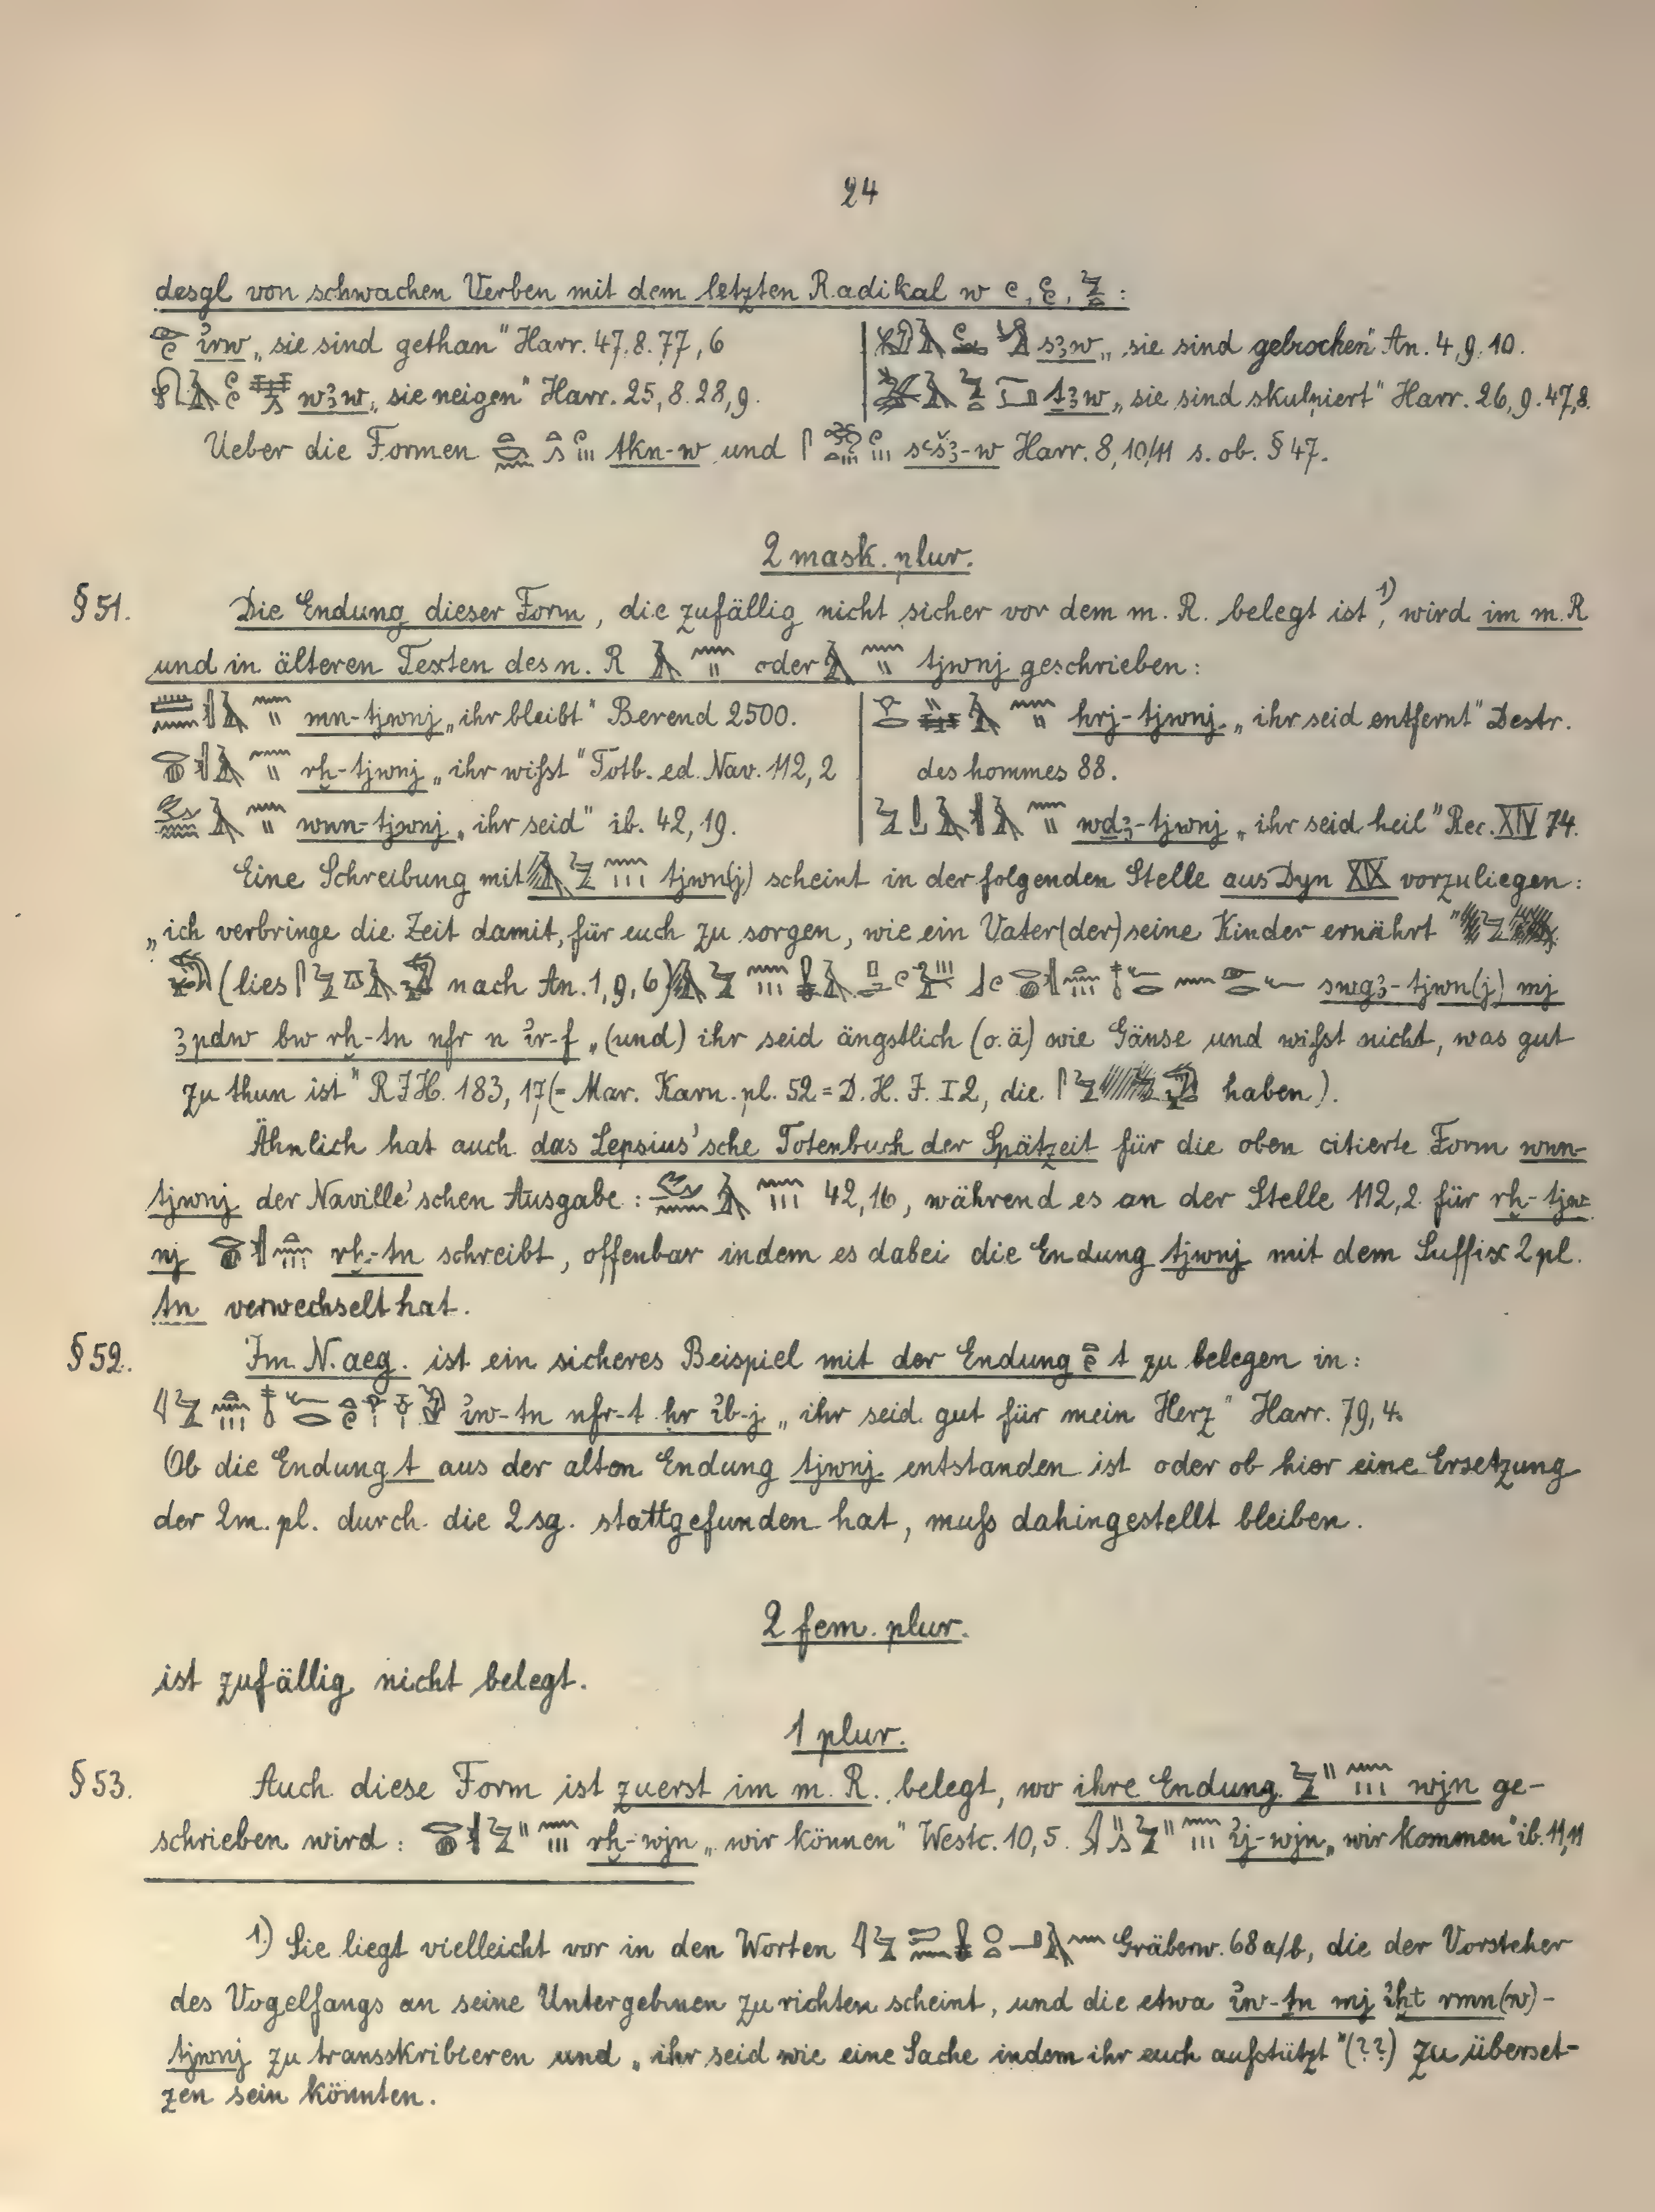 24
desgl von schwachen Verben mit dem letzten Radikal w
ỉrw „sie sind gethan" Harr. 47,8. 77,6
sꜣw „sie sind gebrochen" An. 4,9,10.
wꜣw „sie neigen" Harr. 25,8. 28,9.
tꜣw „sie sind skulpiert" Harr. 26,9. 47,8.
Ueber die Formen tkn-w und sꜥšꜣ-w Harr. 8,10/11 s. ob. § 47.
2 mask. plur.
§ 51. Die Endung dieser Form, die zufällig nicht sicher vor dem m. R. belegt ist ¹⁾, wird im m. R
und in älteren Texten des n. R oder tjwnj geschrieben:
mn-tjwnj „ihr bleibt" Berend 2500.
rḫ-tjwnj „ihr wißt" Totb. ed. Nav. 112,2
wnn-tjwnj „ihr seid" ib. 42,19.
hrj-tjwnj „ihr seid entfernt" Destr.
des hommes 88.
wdꜣ-tjwnj „ihr seid heil" Rec. XIV 74.
Eine Schreibung mit tjwn(j) scheint in der folgenden Stelle aus Dyn XIX vorzuliegen:
„ich verbringe die Zeit damit, für euch zu sorgen, wie ein Vater (der) seine Kinder ernährt"
(lies nach An. 1,9,6) swgꜣ-tjwn(j) mj
ꜣpdw bw rḫ-tn nfr n ỉr-f „(und) ihr seid ängstlich (o. ä) wie Gänse und wißt nicht, was gut
zu thun ist" RJH. 183,17 (= Mar. Karn. pl. 52 = D. H. J. I 2, die haben).
Ähnlich hat auch das Lepsius'sche Totenbuch der Spätzeit für die oben citierte Form wnn-
tjwnj der Naville'schen Ausgabe: 42,16, während es an der Stelle 112,2 für rḫ-tjw
nj rḫ-tn schreibt, offenbar indem es dabei die Endung tjwnj mit dem Suffix 2 pl.
tn verwechselt hat.
§ 52. Im N. aeg. ist ein sicheres Beispiel mit der Endung t zu belegen in:
ỉw-tn nfr-t hr ỉb-j „ihr seid gut für mein Herz" Harr. 79,4.
Ob die Endung t aus der alten Endung tjwnj entstanden ist oder ob hier eine Ersetzung
der 2 m. pl. durch die 2 sg. stattgefunden hat, muß dahingestellt bleiben.
2 fem. plur.
ist zufällig nicht belegt.
1 plur.
§ 53. Auch diese Form ist zuerst im m. R. belegt, wo ihre Endung wjn ge-
schrieben wird: rḫ-wjn „wir können" Westc. 10,5. ỉj-wjn „wir kommen" ib. 11,11
1.) Sie liegt vielleicht vor in den Worten Gräberw. 68 a/b, die der Vorsteher
des Vogelfangs an seine Untergebnen zu richten scheint, und die etwa ỉw-tn mj ỉḫt rmn(w)-
tjwnj zu transskribieren und „ihr seid wie eine Sache indem ihr euch aufstützt" (??) zu überset-
zen sein könnten.